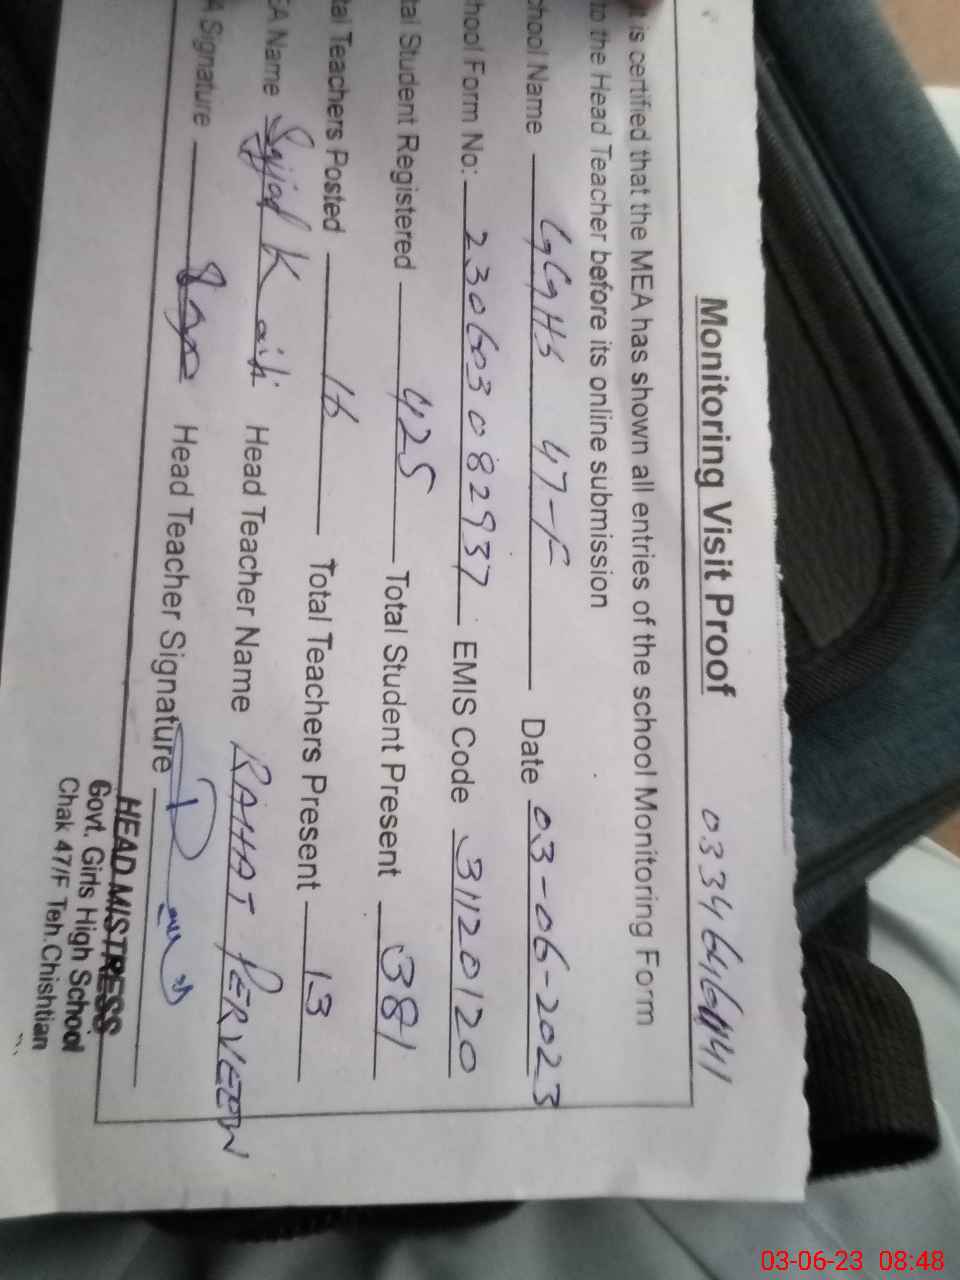 Monitoring Visit Proof 03346464141
t is certified that the MEA has shown all entries of the school Monitoring Form
to the Head Teacher before its online submission
chool Name GGHS 47-F Date 03-06-2023
hool Form No: 230603082937 EMIS Code 31120120
tal Student Registered 425 Total Student Present 381
tal Teachers Posted 16 Total Teachers Present 13
EA Name Sajjad K Head Teacher Name RAHAT PERVEEN
A Signature Head Teacher Signature
HEAD MISTRESS
Govt. Girls High School
Chak 47/F Teh.Chishtian
03-06-23 08:48